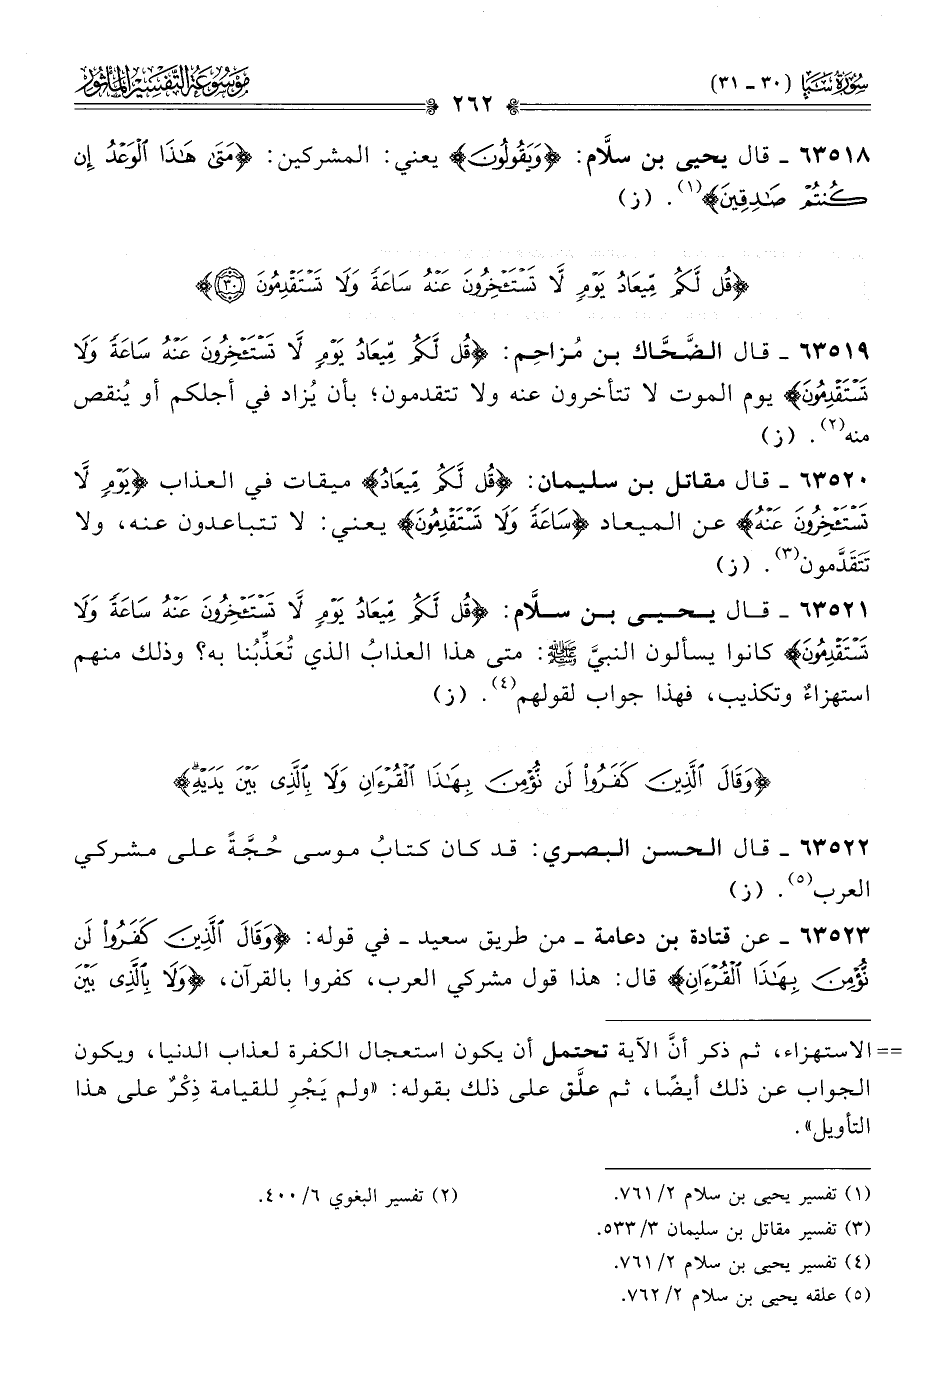 سُورَةُ سَبَإ (٣٠ - ٣١)
موسوعة التفسير المأثور
٢٦٢
٦٣٥١٨ - قال يحيى بن سلَّام: ﴿وَيَقُولُونَ﴾ يعني: المشركين: ﴿مَتَىٰ هَٰذَا ٱلْوَعْدُ إِن
كُنتُمْ صَٰدِقِينَ﴾(١). (ز)
﴿قُل لَّكُم مِّيعَادُ يَوْمٍ لَّا تَسْتَـْٔخِرُونَ عَنْهُ سَاعَةً وَلَا تَسْتَقْدِمُونَ ٣٠﴾
٦٣٥١٩ - قال الضَّحَّاك بن مُزاحِم: ﴿قُل لَّكُم مِّيعَادُ يَوْمٍ لَّا تَسْتَـْٔخِرُونَ عَنْهُ سَاعَةً وَلَا
تَسْتَقْدِمُونَ﴾ يوم الموت لا تتأخرون عنه ولا تتقدمون؛ بأن يُزاد في أجلكم أو يُنقص
منه(٢). (ز)
٦٣٥٢٠ - قال مقاتل بن سليمان: ﴿قُل لَّكُم مِّيعَادُ﴾ ميقات في العذاب ﴿يَوْمٍ لَّا
تَسْتَـْٔخِرُونَ عَنْهُ﴾ عن الميعاد ﴿سَاعَةً وَلَا تَسْتَقْدِمُونَ﴾ يعني: لا تتباعدون عنه، ولا
تَتَقَدَّمون(٣). (ز)
٦٣٥٢١ - قال يحيى بن سلَّام: ﴿قُل لَّكُم مِّيعَادُ يَوْمٍ لَّا تَسْتَـْٔخِرُونَ عَنْهُ سَاعَةً وَلَا
تَسْتَقْدِمُونَ﴾ كانوا يسألون النبيَّ ﷺ: متى هذا العذابُ الذي تُعَذِّبُنا به؟ وذلك منهم
استهزاءٌ وتكذيب، فهذا جواب لقولهم(٤). (ز)
﴿وَقَالَ ٱلَّذِينَ كَفَرُوا۟ لَن نُّؤْمِنَ بِهَٰذَا ٱلْقُرْءَانِ وَلَا بِٱلَّذِى بَيْنَ يَدَيْهِۗ﴾
٦٣٥٢٢ - قال الحسن البصري: قد كان كتابُ موسى حُجَّةً على مشركي
العرب(٥). (ز)
٦٣٥٢٣ - عن قتادة بن دعامة - من طريق سعيد - في قوله: ﴿وَقَالَ ٱلَّذِينَ كَفَرُوا۟ لَن
نُّؤْمِنَ بِهَٰذَا ٱلْقُرْءَانِ﴾ قال: هذا قول مشركي العرب، كفروا بالقرآن، ﴿وَلَا بِٱلَّذِى بَيْنَ
== الاستهزاء، ثم ذكر أنَّ الآية تحتمل أن يكون استعجال الكفرة لعذاب الدنيا، ويكون
الجواب عن ذلك أيضًا، ثم علَّق على ذلك بقوله: «ولم يَجْرِ للقيامة ذِكْرٌ على هذا
التأويل».
(١) تفسير يحيى بن سلام ٢/ ٧٦١. (٢) تفسير البغوي ٦/ ٤٠٠.
(٣) تفسير مقاتل بن سليمان ٣/ ٥٣٣.
(٤) تفسير يحيى بن سلام ٢/ ٧٦١.
(٥) علقه يحيى بن سلام ٢/ ٧٦٢.